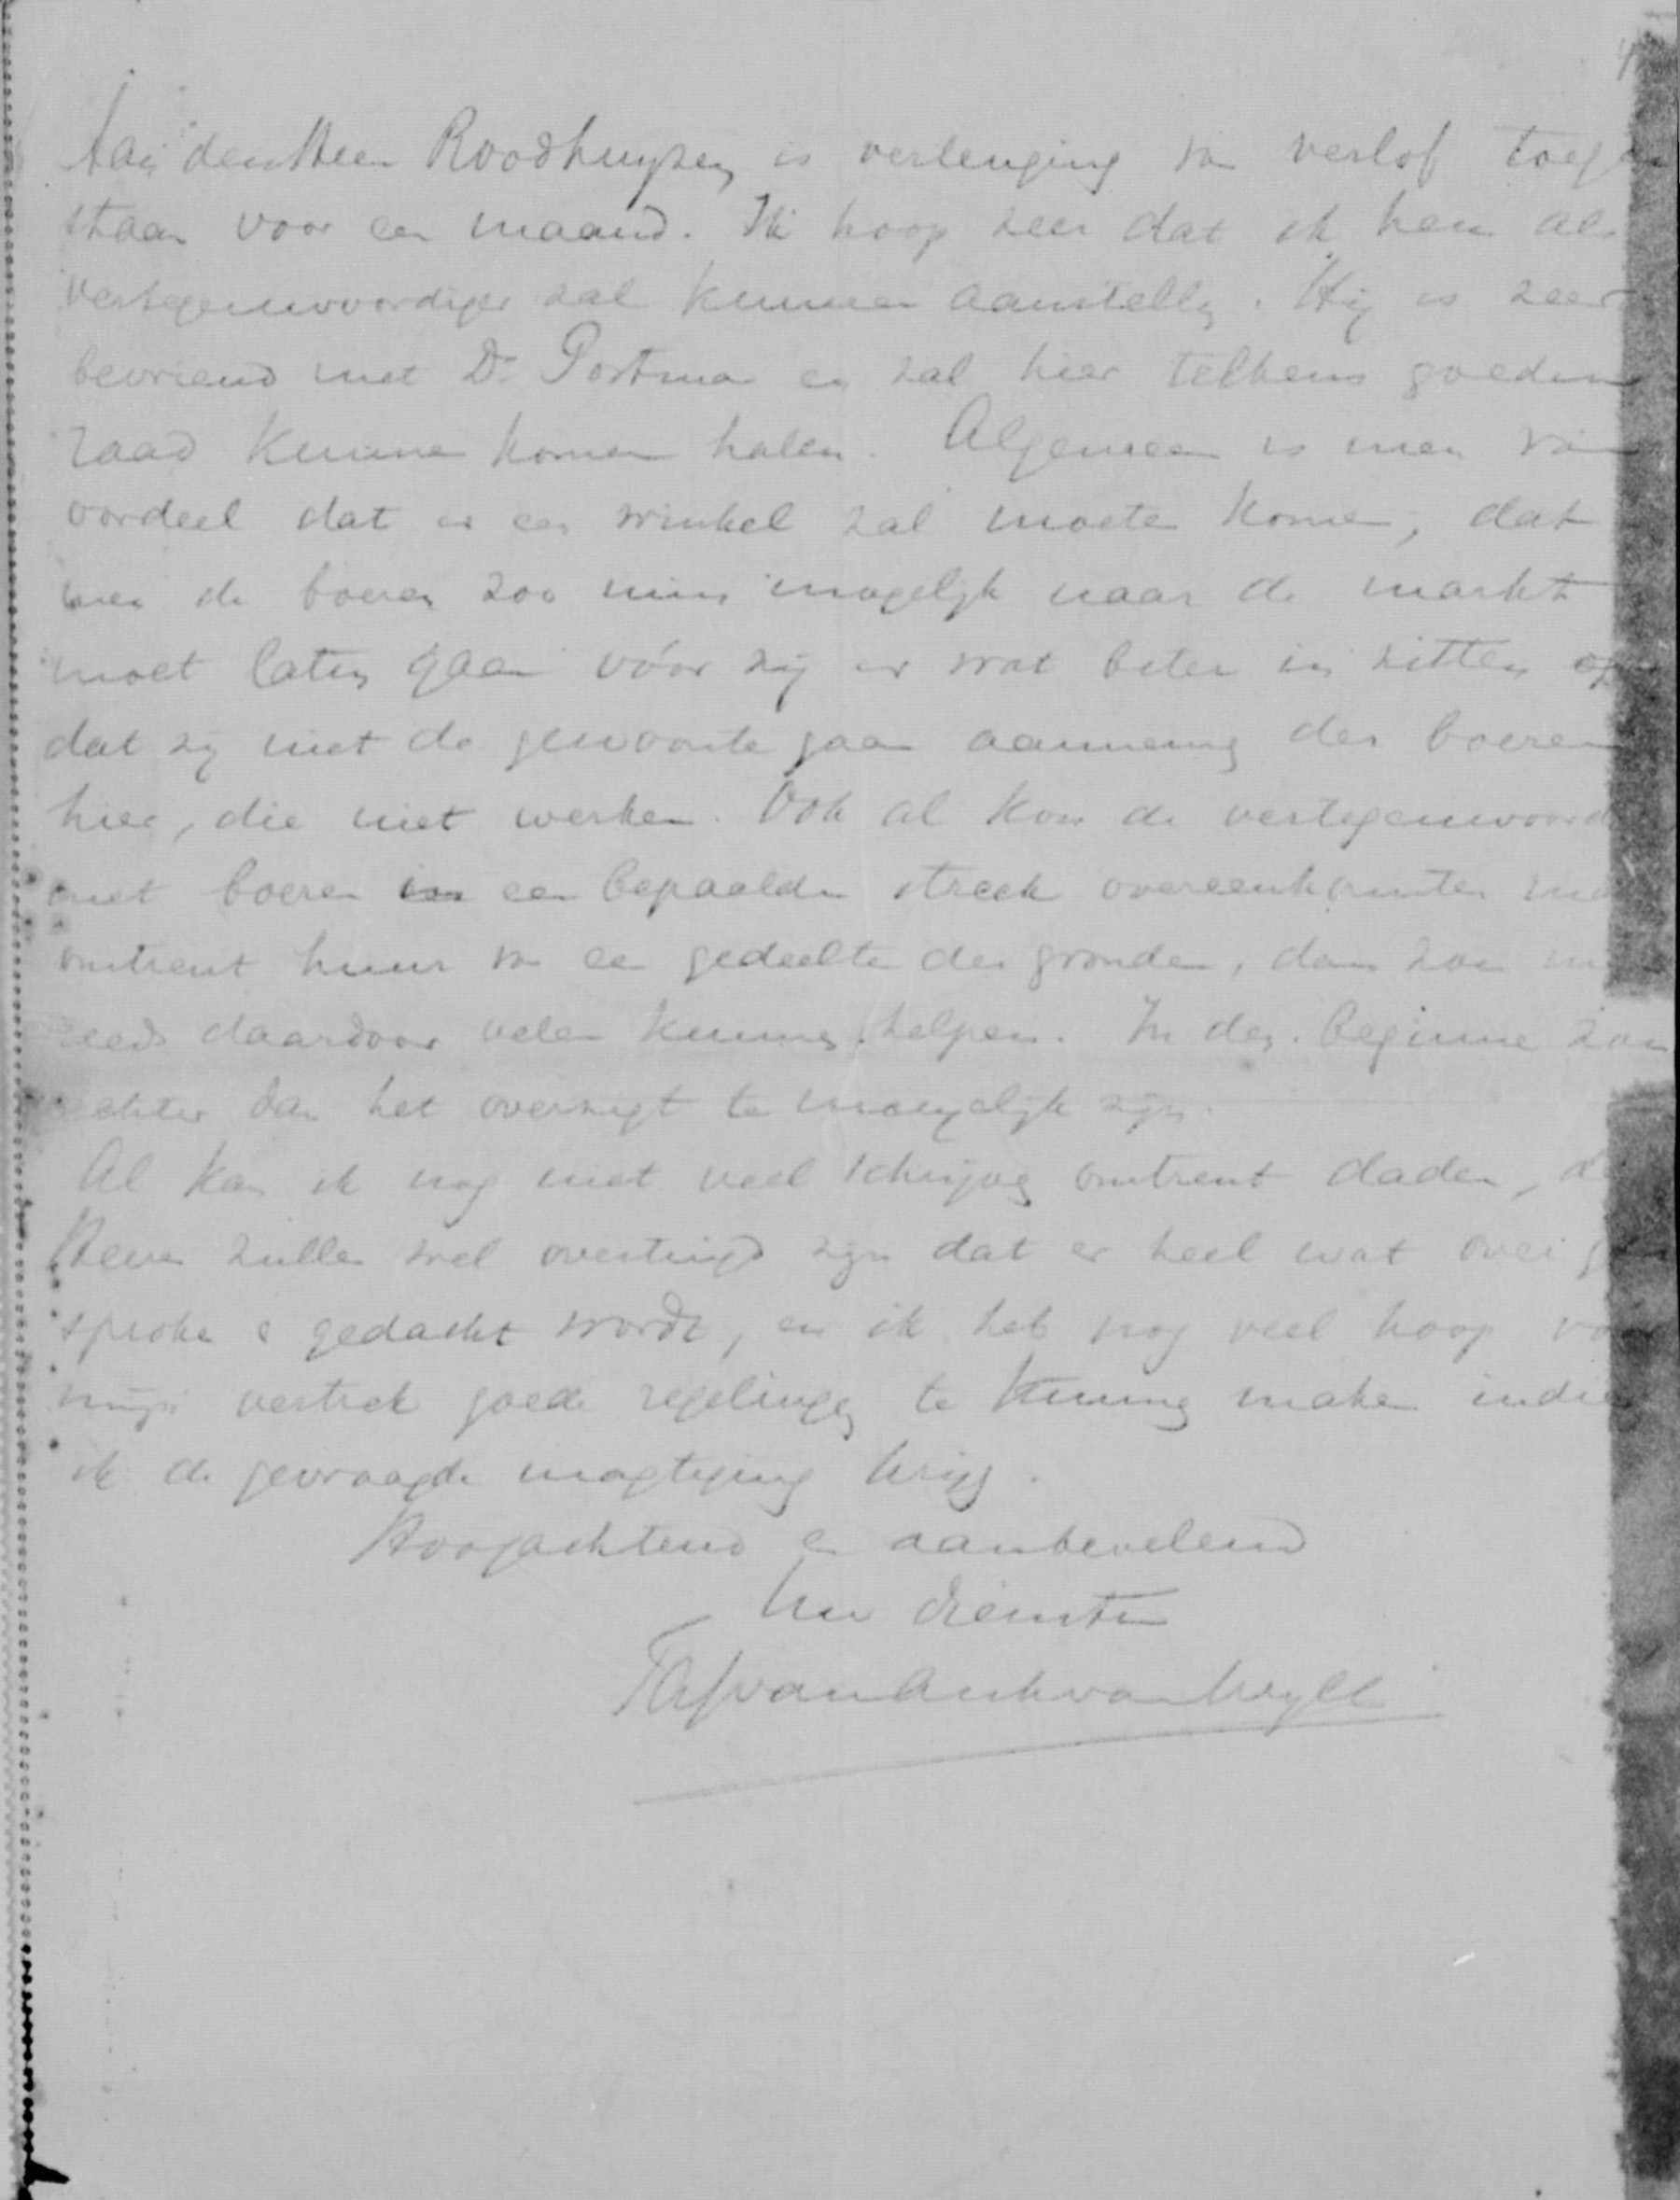 Aan den Heer Roodhuyzen is verlenging van verlof toege
staan voor een maand. Ik hoop zeer dat ik hem als
vertegenwoordiger zal kunnen aanstellen. Hij is zeer
bevriend met Dr Postma en zal hier telkens goeden
raad kunnen komen halen. Algemeen is men van
oordeel dat er een winkel zal moeten komen, dat
men de boeren zoo min mogelijk naar de markt
moet laten gaan vóór zij er wat beter in zitten op
dat zij niet de gewoonte gaan aannemen der boeren
hier, die niet werken. Ook al kon de vertegenwoord
met boeren in een bepaalde streek overeenkomsten
omtrent huur van een gedeelte der gronden, dan zou
reeds daardoor velen kunnen helpen. In den beginne zou
echter dan het overzigt te moeijelijk zijn.
Al kan ik nog niet veel schrijven omtrent daden, d
Heeren zullen wel overtuigd zijn dat er heel wat over ge
sproken en gedacht wordt, en ik heb nog veel hoop voor
mijn vertrek goede regelingen te kunnen maken indien
ik de gevraagde magtiging krijg.
Hoogachtend en aanbevelend
Uw dienstw